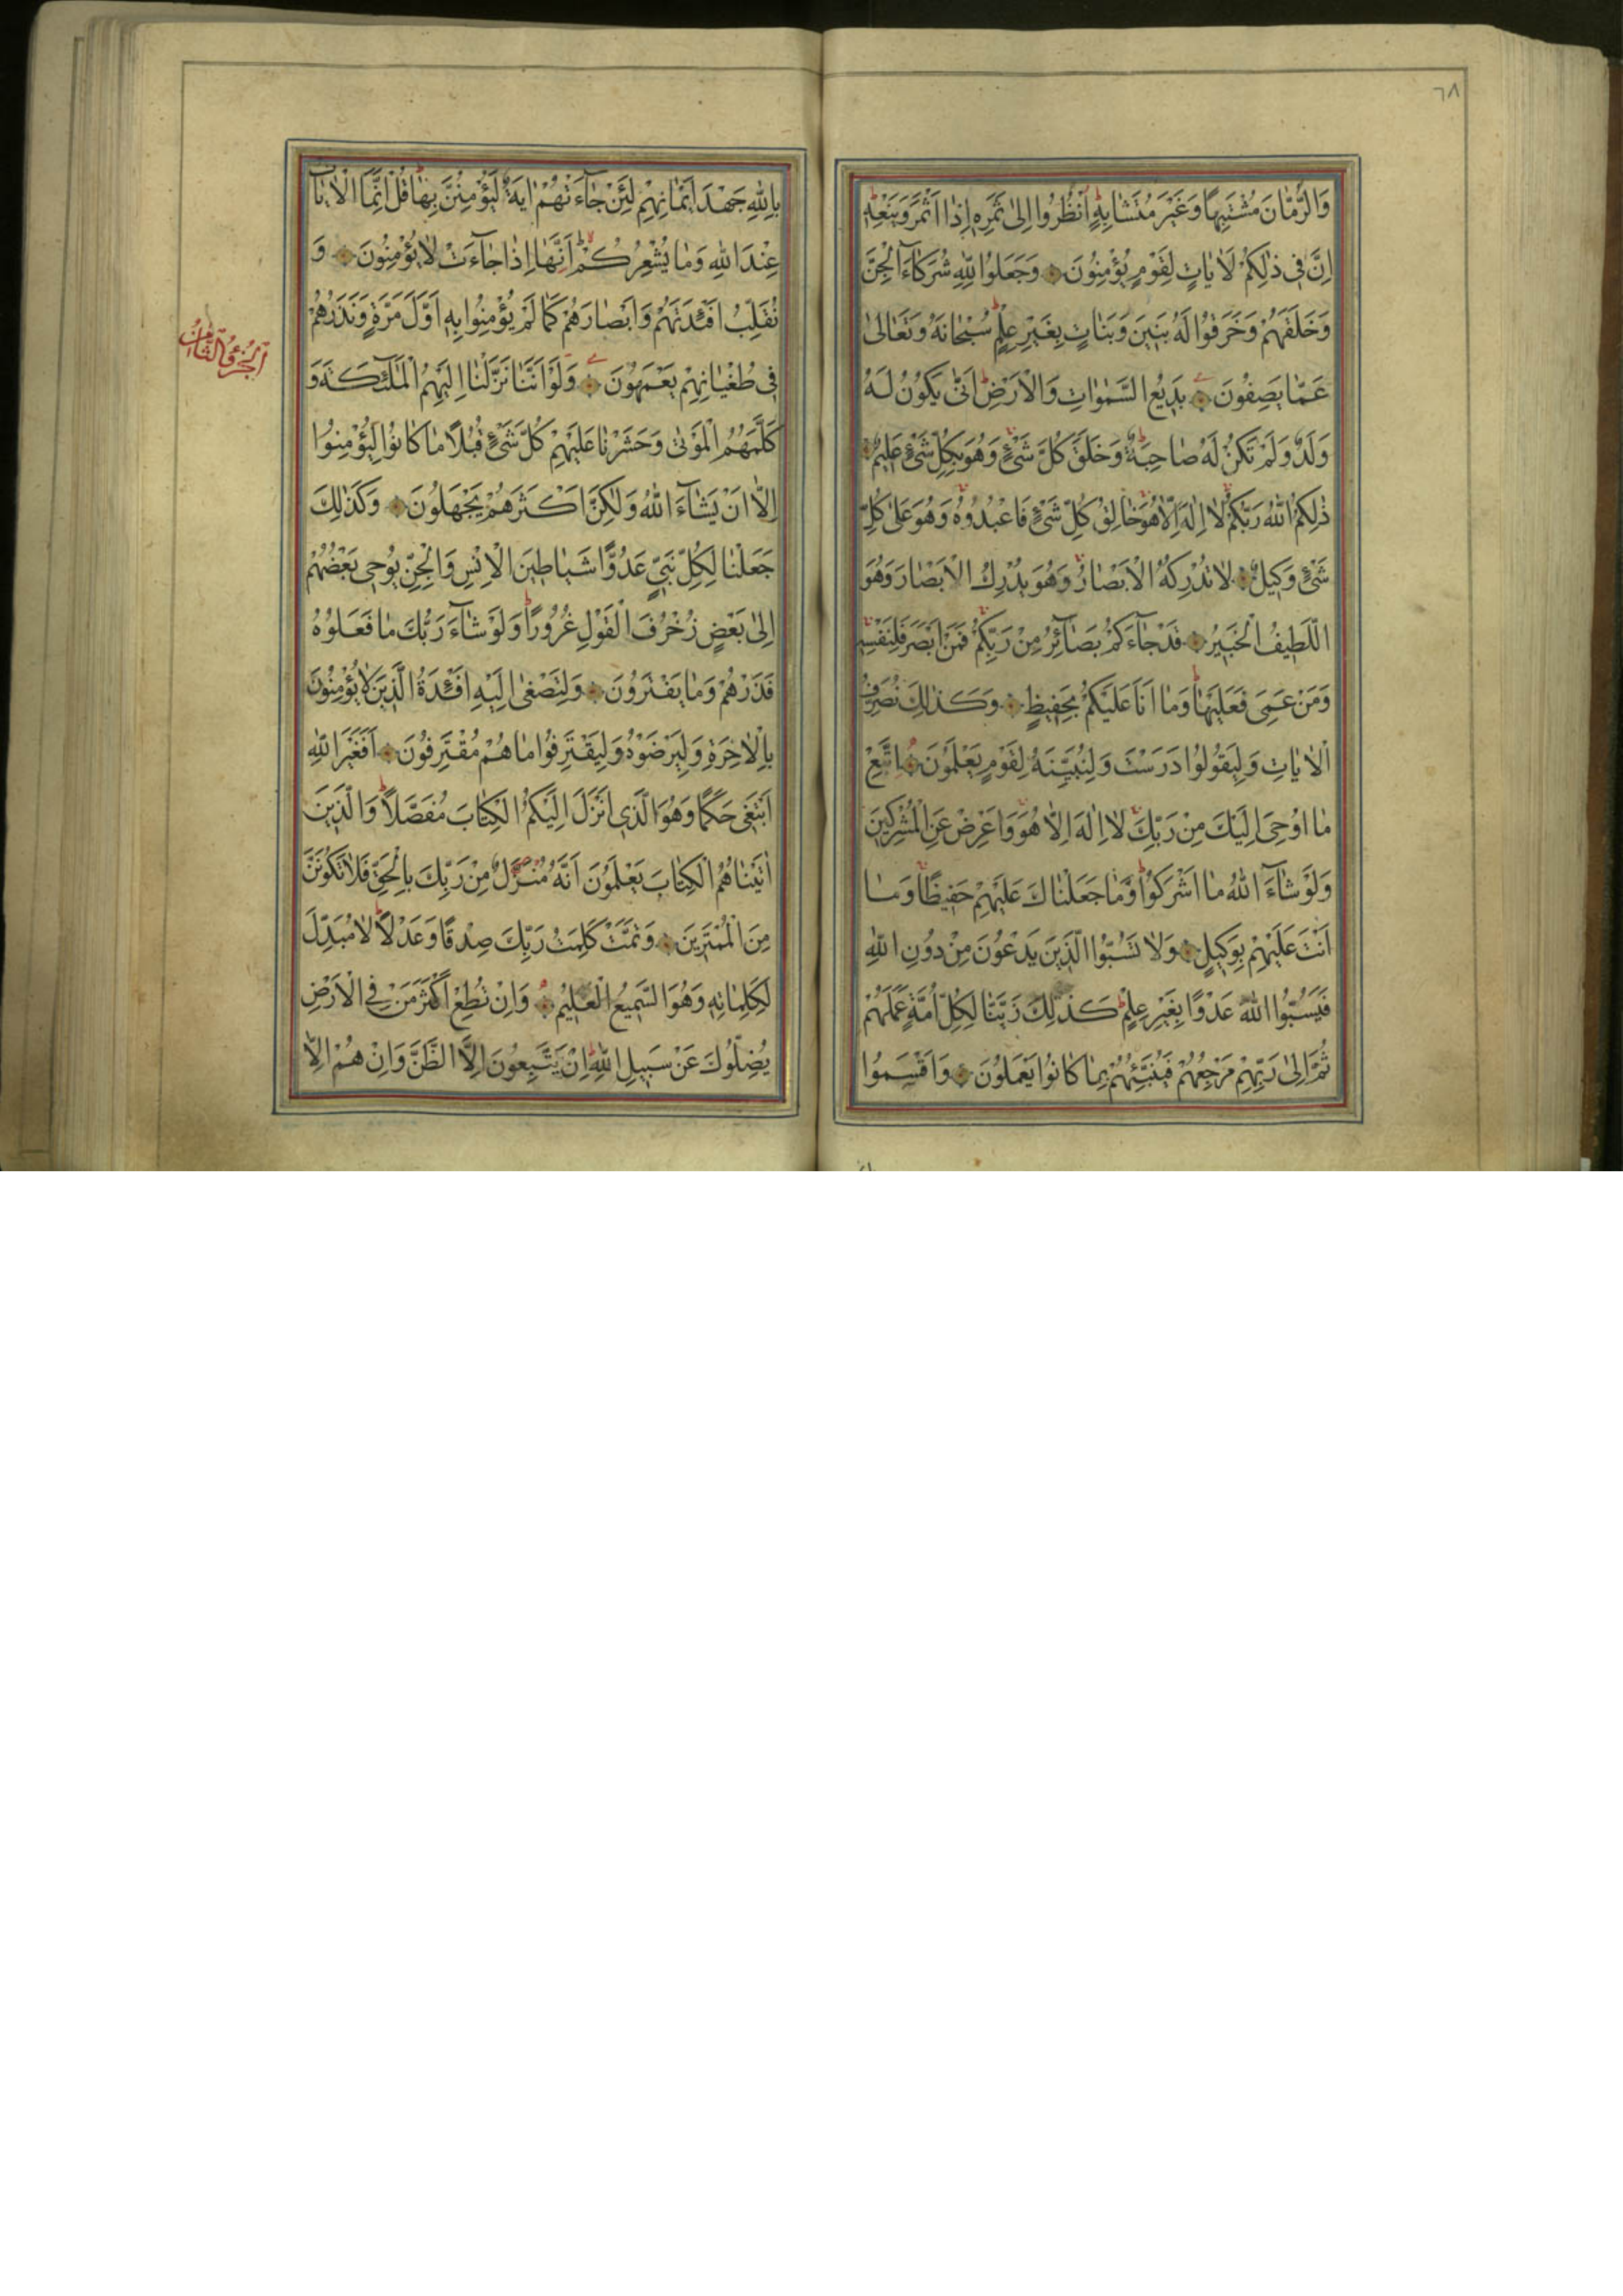 ٦٨
وَالرُّمّانَ مُشْتَبِهًا وَغَيْرَ مُتَشابِهٍ اُنْظُرُوا اِلىٰ ثَمَرِهِ اِذا اَثْمَرَ وَيَنْعِهِ
اِنَّ فى ذٰلِكُمْ لَاٰياتٍ لِقَوْمٍ يُؤْمِنُونَ وَجَعَلُوا لِلّٰهِ شُرَكآءَ الْجِنَّ
وَخَلَقَهُمْ وَخَرَقُوا لَهُ بَنينَ وَبَناتٍ بِغَيْرِ عِلْمٍ سُبْحانَهُ وَتَعالىٰ
عَمّا يَصِفُونَ بَديعُ السَّمٰواتِ وَالْاَرْضِ اَنّىٰ يَكُونُ لَهُ
وَلَدٌ وَلَمْ تَكُنْ لَهُ صاحِبَةٌ وَخَلَقَ كُلَّ شَىْءٍ وَهُوَ بِكُلِّ شَىْءٍ عَليمٌ
ذٰلِكُمُ اللّٰهُ رَبُّكُمْ لا اِلٰهَ اِلّا هُوَ خالِقُ كُلِّ شَىْءٍ فَاعْبُدُوهُ وَهُوَ عَلىٰ كُلِّ
شَىْءٍ وَكيلٌ لا تُدْرِكُهُ الْاَبْصارُ وَهُوَ يُدْرِكُ الْاَبْصارَ وَهُوَ
اللَّطيفُ الْخَبيرُ قَدْ جآءَكُمْ بَصآئِرُ مِنْ رَبِّكُمْ فَمَنْ اَبْصَرَ فَلِنَفْسِهِ
وَمَنْ عَمِىَ فَعَلَيْها وَما اَنَا عَلَيْكُمْ بِحَفيظٍ وَكَذٰلِكَ نُصَرِّفُ
الْاٰياتِ وَلِيَقُولُوا دَرَسْتَ وَلِنُبَيِّنَهُ لِقَوْمٍ يَعْلَمُونَ اِتَّبِعْ
ما اُوحِىَ اِلَيْكَ مِنْ رَبِّكَ لا اِلٰهَ اِلّا هُوَ وَاَعْرِضْ عَنِ الْمُشْرِكينَ
وَلَوْ شآءَ اللّٰهُ ما اَشْرَكُوا وَما جَعَلْناكَ عَلَيْهِمْ حَفيظًا وَما
اَنْتَ عَلَيْهِمْ بِوَكيلٍ وَلا تَسُبُّوا الَّذينَ يَدْعُونَ مِنْ دُونِ اللّٰهِ
فَيَسُبُّوا اللّٰهَ عَدْوًا بِغَيْرِ عِلْمٍ كَذٰلِكَ زَيَّنّا لِكُلِّ اُمَّةٍ عَمَلَهُمْ
ثُمَّ اِلىٰ رَبِّهِمْ مَرْجِعُهُمْ فَيُنَبِّئُهُمْ بِما كانُوا يَعْمَلُونَ وَاَقْسَمُوا
بِاللّٰهِ جَهْدَ اَيْمانِهِمْ لَئِنْ جآءَتْهُمْ اٰيَةٌ لَيُؤْمِنُنَّ بِها قُلْ اِنَّمَا الْاٰياتُ
عِنْدَ اللّٰهِ وَما يُشْعِرُكُمْ اَنَّها اِذا جآءَتْ لا يُؤْمِنُونَ وَ
نُقَلِّبُ اَفْئِدَتَهُمْ وَاَبْصارَهُمْ كَما لَمْ يُؤْمِنُوا بِهِ اَوَّلَ مَرَّةٍ وَنَذَرُهُمْ
فى طُغْيانِهِمْ يَعْمَهُونَ وَلَوْ اَنَّنا نَزَّلْنا اِلَيْهِمُ الْمَلٰئِكَةَ وَ
كَلَّمَهُمُ الْمَوْتىٰ وَحَشَرْنا عَلَيْهِمْ كُلَّ شَىْءٍ قُبُلًا ما كانُوا لِيُؤْمِنُوا
اِلّا اَنْ يَشآءَ اللّٰهُ وَلٰكِنَّ اَكْثَرَهُمْ يَجْهَلُونَ وَكَذٰلِكَ
جَعَلْنا لِكُلِّ نَبِىٍّ عَدُوًّا شَياطينَ الْاِنْسِ وَالْجِنِّ يُوحى بَعْضُهُمْ
اِلىٰ بَعْضٍ زُخْرُفَ الْقَوْلِ غُرُورًا وَلَوْ شآءَ رَبُّكَ ما فَعَلُوهُ
فَذَرْهُمْ وَما يَفْتَرُونَ وَلِتَصْغىٰ اِلَيْهِ اَفْئِدَةُ الَّذينَ لا يُؤْمِنُونَ
بِالْاٰخِرَةِ وَلِيَرْضَوْهُ وَلِيَقْتَرِفُوا ما هُمْ مُقْتَرِفُونَ اَفَغَيْرَ اللّٰهِ
اَبْتَغى حَكَمًا وَهُوَ الَّذى اَنْزَلَ اِلَيْكُمُ الْكِتابَ مُفَصَّلًا وَالَّذينَ
اٰتَيْناهُمُ الْكِتابَ يَعْلَمُونَ اَنَّهُ مُنَزَّلٌ مِنْ رَبِّكَ بِالْحَقِّ فَلا تَكُونَنَّ
مِنَ الْمُمْتَرينَ وَتَمَّتْ كَلِمَتُ رَبِّكَ صِدْقًا وَعَدْلًا لا مُبَدِّلَ
لِكَلِماتِهِ وَهُوَ السَّميعُ الْعَليمُ وَاِنْ تُطِعْ اَكْثَرَ مَنْ فِى الْاَرْضِ
يُضِلُّوكَ عَنْ سَبيلِ اللّٰهِ اِنْ يَتَّبِعُونَ اِلَّا الظَّنَّ وَاِنْ هُمْ اِلّا
اَلْجُزْءُ الثّامِنُ